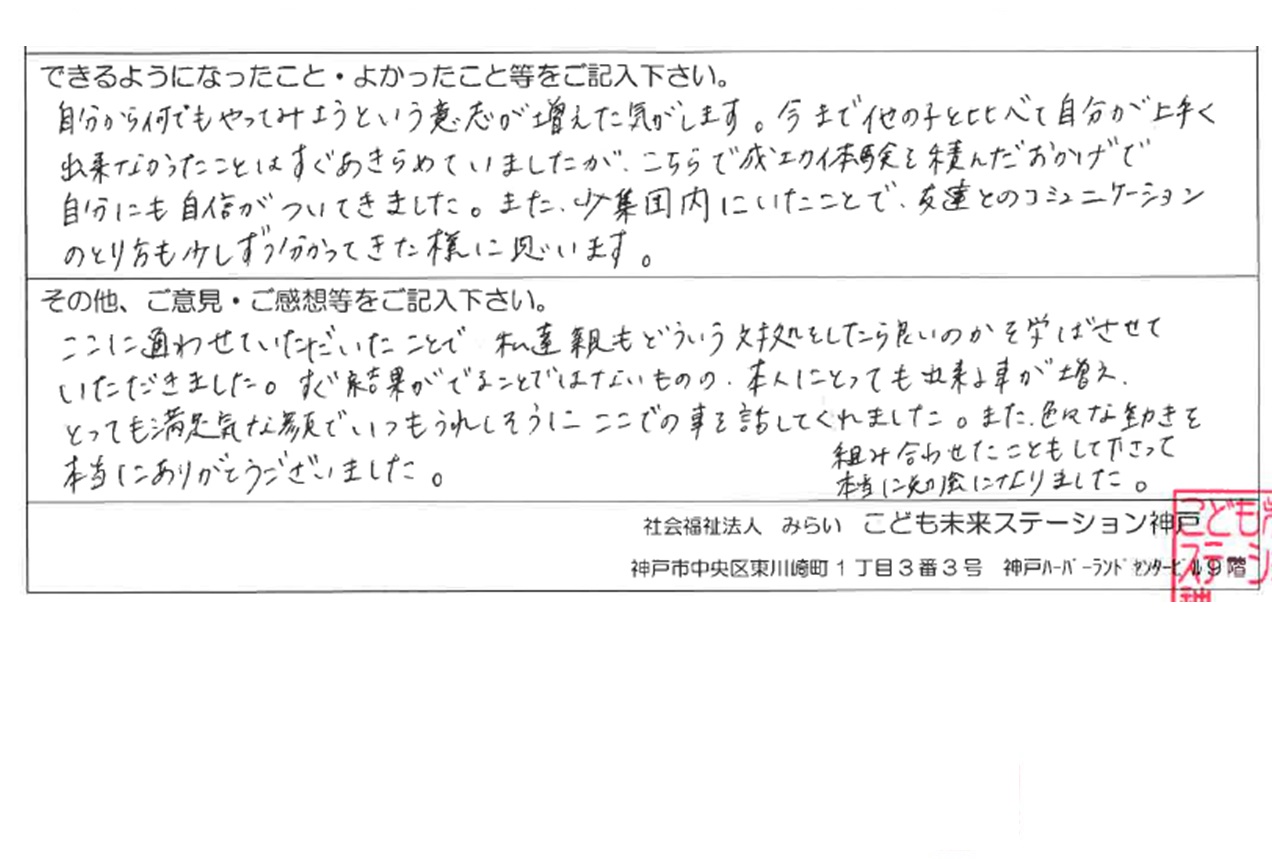 できるようになったこと・よかったこと等をご記入下さい。
自分から何でもやってみようという意志が増えた気がします。今まで他の子と比べて自分が上手く
出来なかったことはすぐあきらめていましたが、こちらで成功体験を積んだおかげで
自分にも自信がついてきました。また、少集団内にいたことで、友達とのコミュニケーション
のとり方も少しずつ分かってきた様に思います。
その他、ご意見・ご感想等をご記入下さい。
ここに通わせていただいたことで 私達親もどういう対処をしたら良いのかを学ばさせて
いただきました。すぐ結果がでることではないものの、本人にとっても出来る事が増え、
とっても満足気な顔でいつもうれしそうにここでの事を話してくれました。また、色々な動きを
組み合わせたこともして下さって
本当に勉強になりました。
本当にありがとうございました。
社会福祉法人 みらい こども未来ステーション神戸
神戸市中央区東川崎町1丁目3番3号 神戸ハーバーランドセンタービル9階
こども
ステーシ